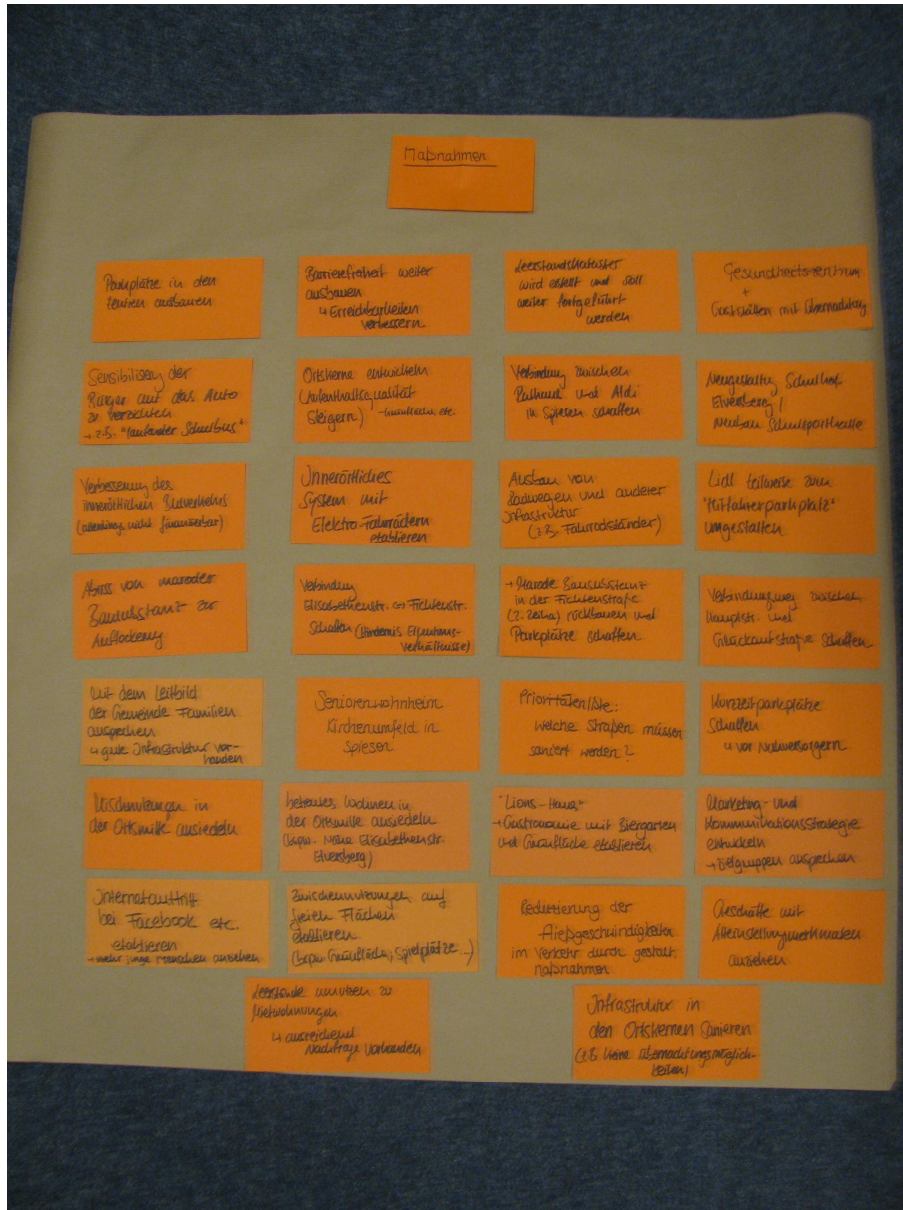 Maßnahmen
Parkplätze in den
Zentren ausbauen
Barrierefreiheit weiter
ausbauen
↳ Erreichbarkeiten
verbessern
Leerstandskataster
wird erstellt und soll
weiter fortgeführt
werden
Gesundheitszentrum
+
Gaststätten mit Übernachtung
Sensibilisierg der
Bürger auf das Auto
zu verzichten
→ z.B. "laufender Schulbus"
Ortskerne entwickeln
(Aufenthaltsqualität
steigern) - Grünfläche etc.
Verbindung zwischen
und Aldi
in Spiesen schaffen
Neugestaltg Schulhof
Elversberg /
Neubau Schulsporthalle
Verbesserung des
innerörtlichen Busverkehrs
(allerdings nicht finanzierbar)
Innerörtliches
System mit
Elektro-Fahrrädern
etablieren
Ausbau von
Radwegen und anderer
Infrastruktur
(z.B. Fahrradständer)
Lidl teilweise zum
"Mitfahrerparkplatz"
umgestalten
Abriss von maroder
Bausubstanz zur
Auflockerg
Verbindung
Elisabethenstr. ↔ Fichtenstr.
schaffen (Hindernis Eigentums-
verhältnisse)
→ Marode Bausubstanz
in der Fichtenstraße
(2. Reihe) rückbauen und
Parkplätze schaffen
Verbindungsweg zwischen
Hauptstr. und
Glückaufstraße schaffen
Mit dem Leitbild
der Gemeinde Familien
ansprechen
↳ gute Infrastruktur vor-
handen
Seniorenwohnheim
Kirchenumfeld in
Spiesen
Prioritätenliste:
welche Straßen müssen
saniert werden?
Kurzzeitparkplätze
schaffen
↳ vor Nahversorgern
Mischnutzungen in
der Ortsmitte ansiedeln
betreutes Wohnen in
der Ortsmitte ansiedeln
(bspw. Nähe Elisabethenstr.
Elversberg)
"Lions-Haus"
→ Gastronomie mit Biergarten
und Grünfläche etablieren
Marketing- und
Kommunikationsstrategie
entwickeln
→ Zielgruppen ansprechen
Internetauftritt
bei Facebook etc.
etablieren
→ mehr junge Menschen ansehen
Zwischennutzungen auf
freien Flächen
etablieren
(bspw. Grünfläche, Spielplätze ...)
Reduzierung der
Fließgeschwindigkeiten
im Verkehr durch gestalt.
Maßnahmen
Geschäfte mit
Alleinstellungsmerkmalen
ansehen
Leerstände umnutzen zu
Mietwohnungen
↳ ausreichend
Nachfrage vorhanden
Infrastruktur in
den Ortskernen sanieren
(z.B. keine Übernachtungsmöglich-
keiten)